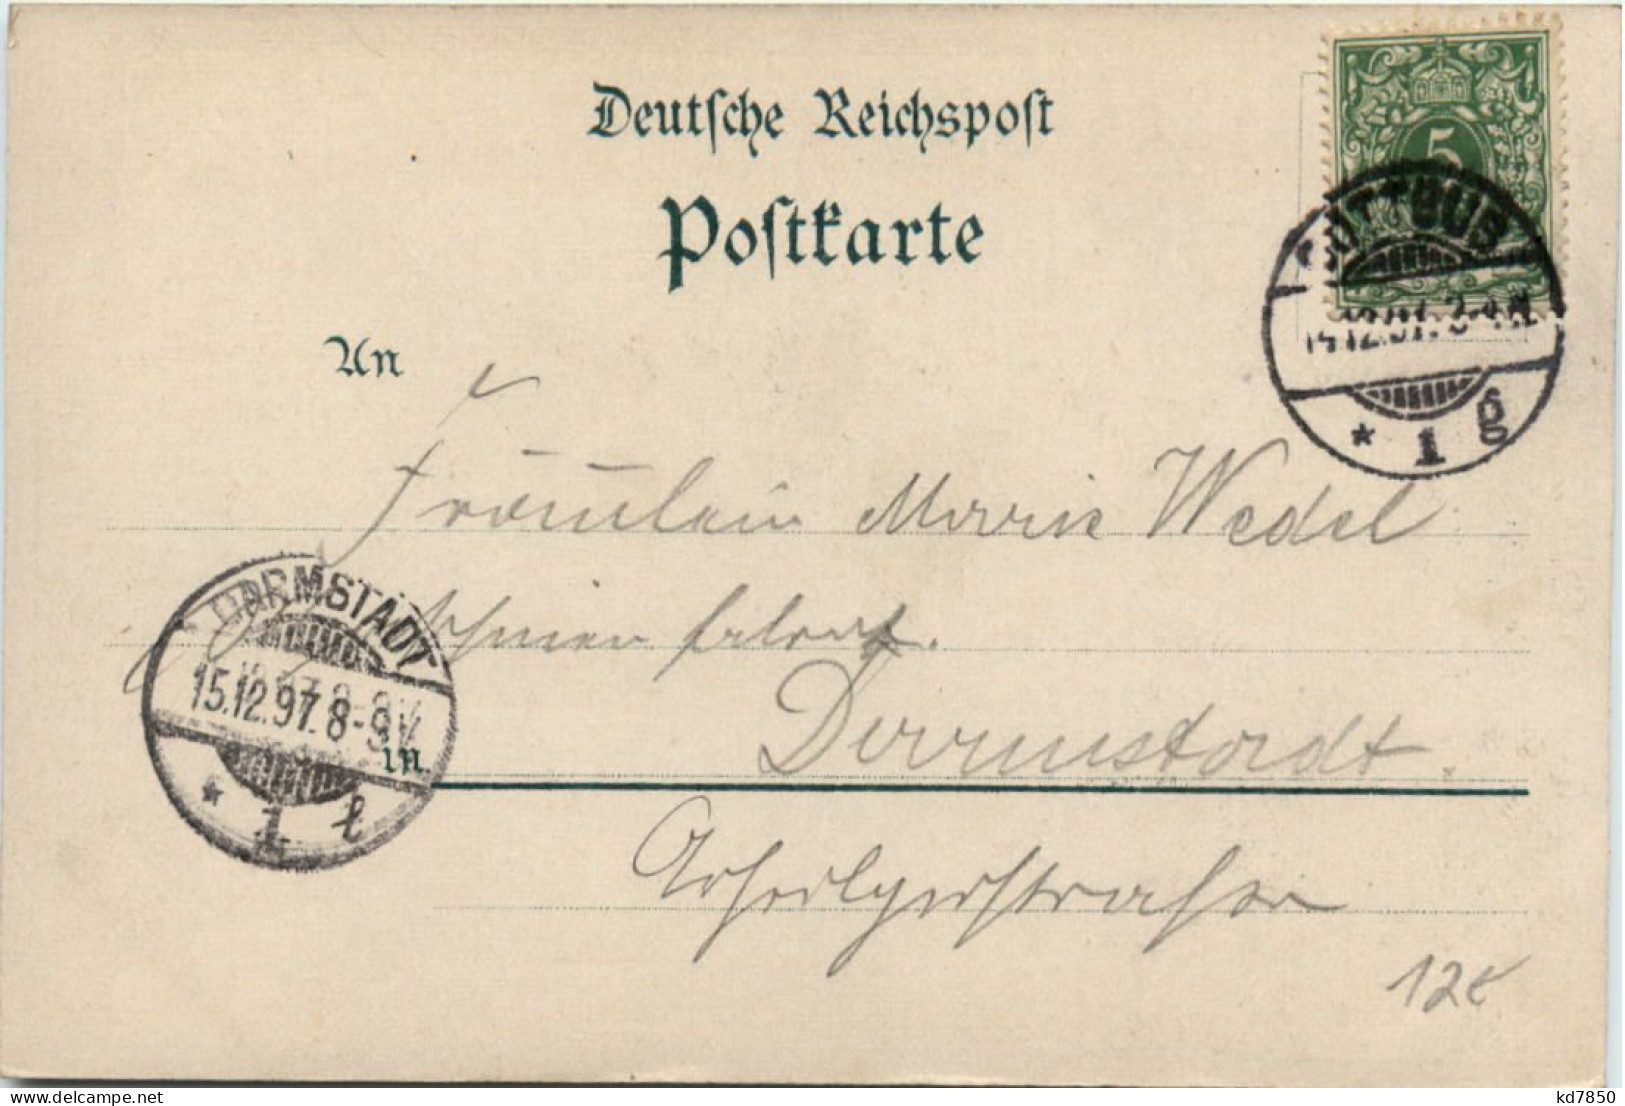 Deutsche Reichspost
Postkarte
5
COTTBUS
14.12.97. 3-4 N
* 1 g
An
Fräulein Marie Wedel
DARMSTADT
15.12.97. 8-9 V.
* 1 l
in Darmstadt.
Arheilgerstraße
12 c
kd7850